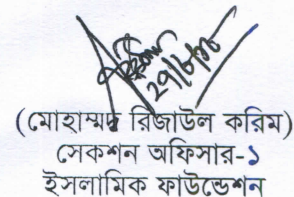 (মোহাম্মদ রিজাউল করিম)
সেকশন অফিসার-১
ইসলামিক ফাউন্ডেশন